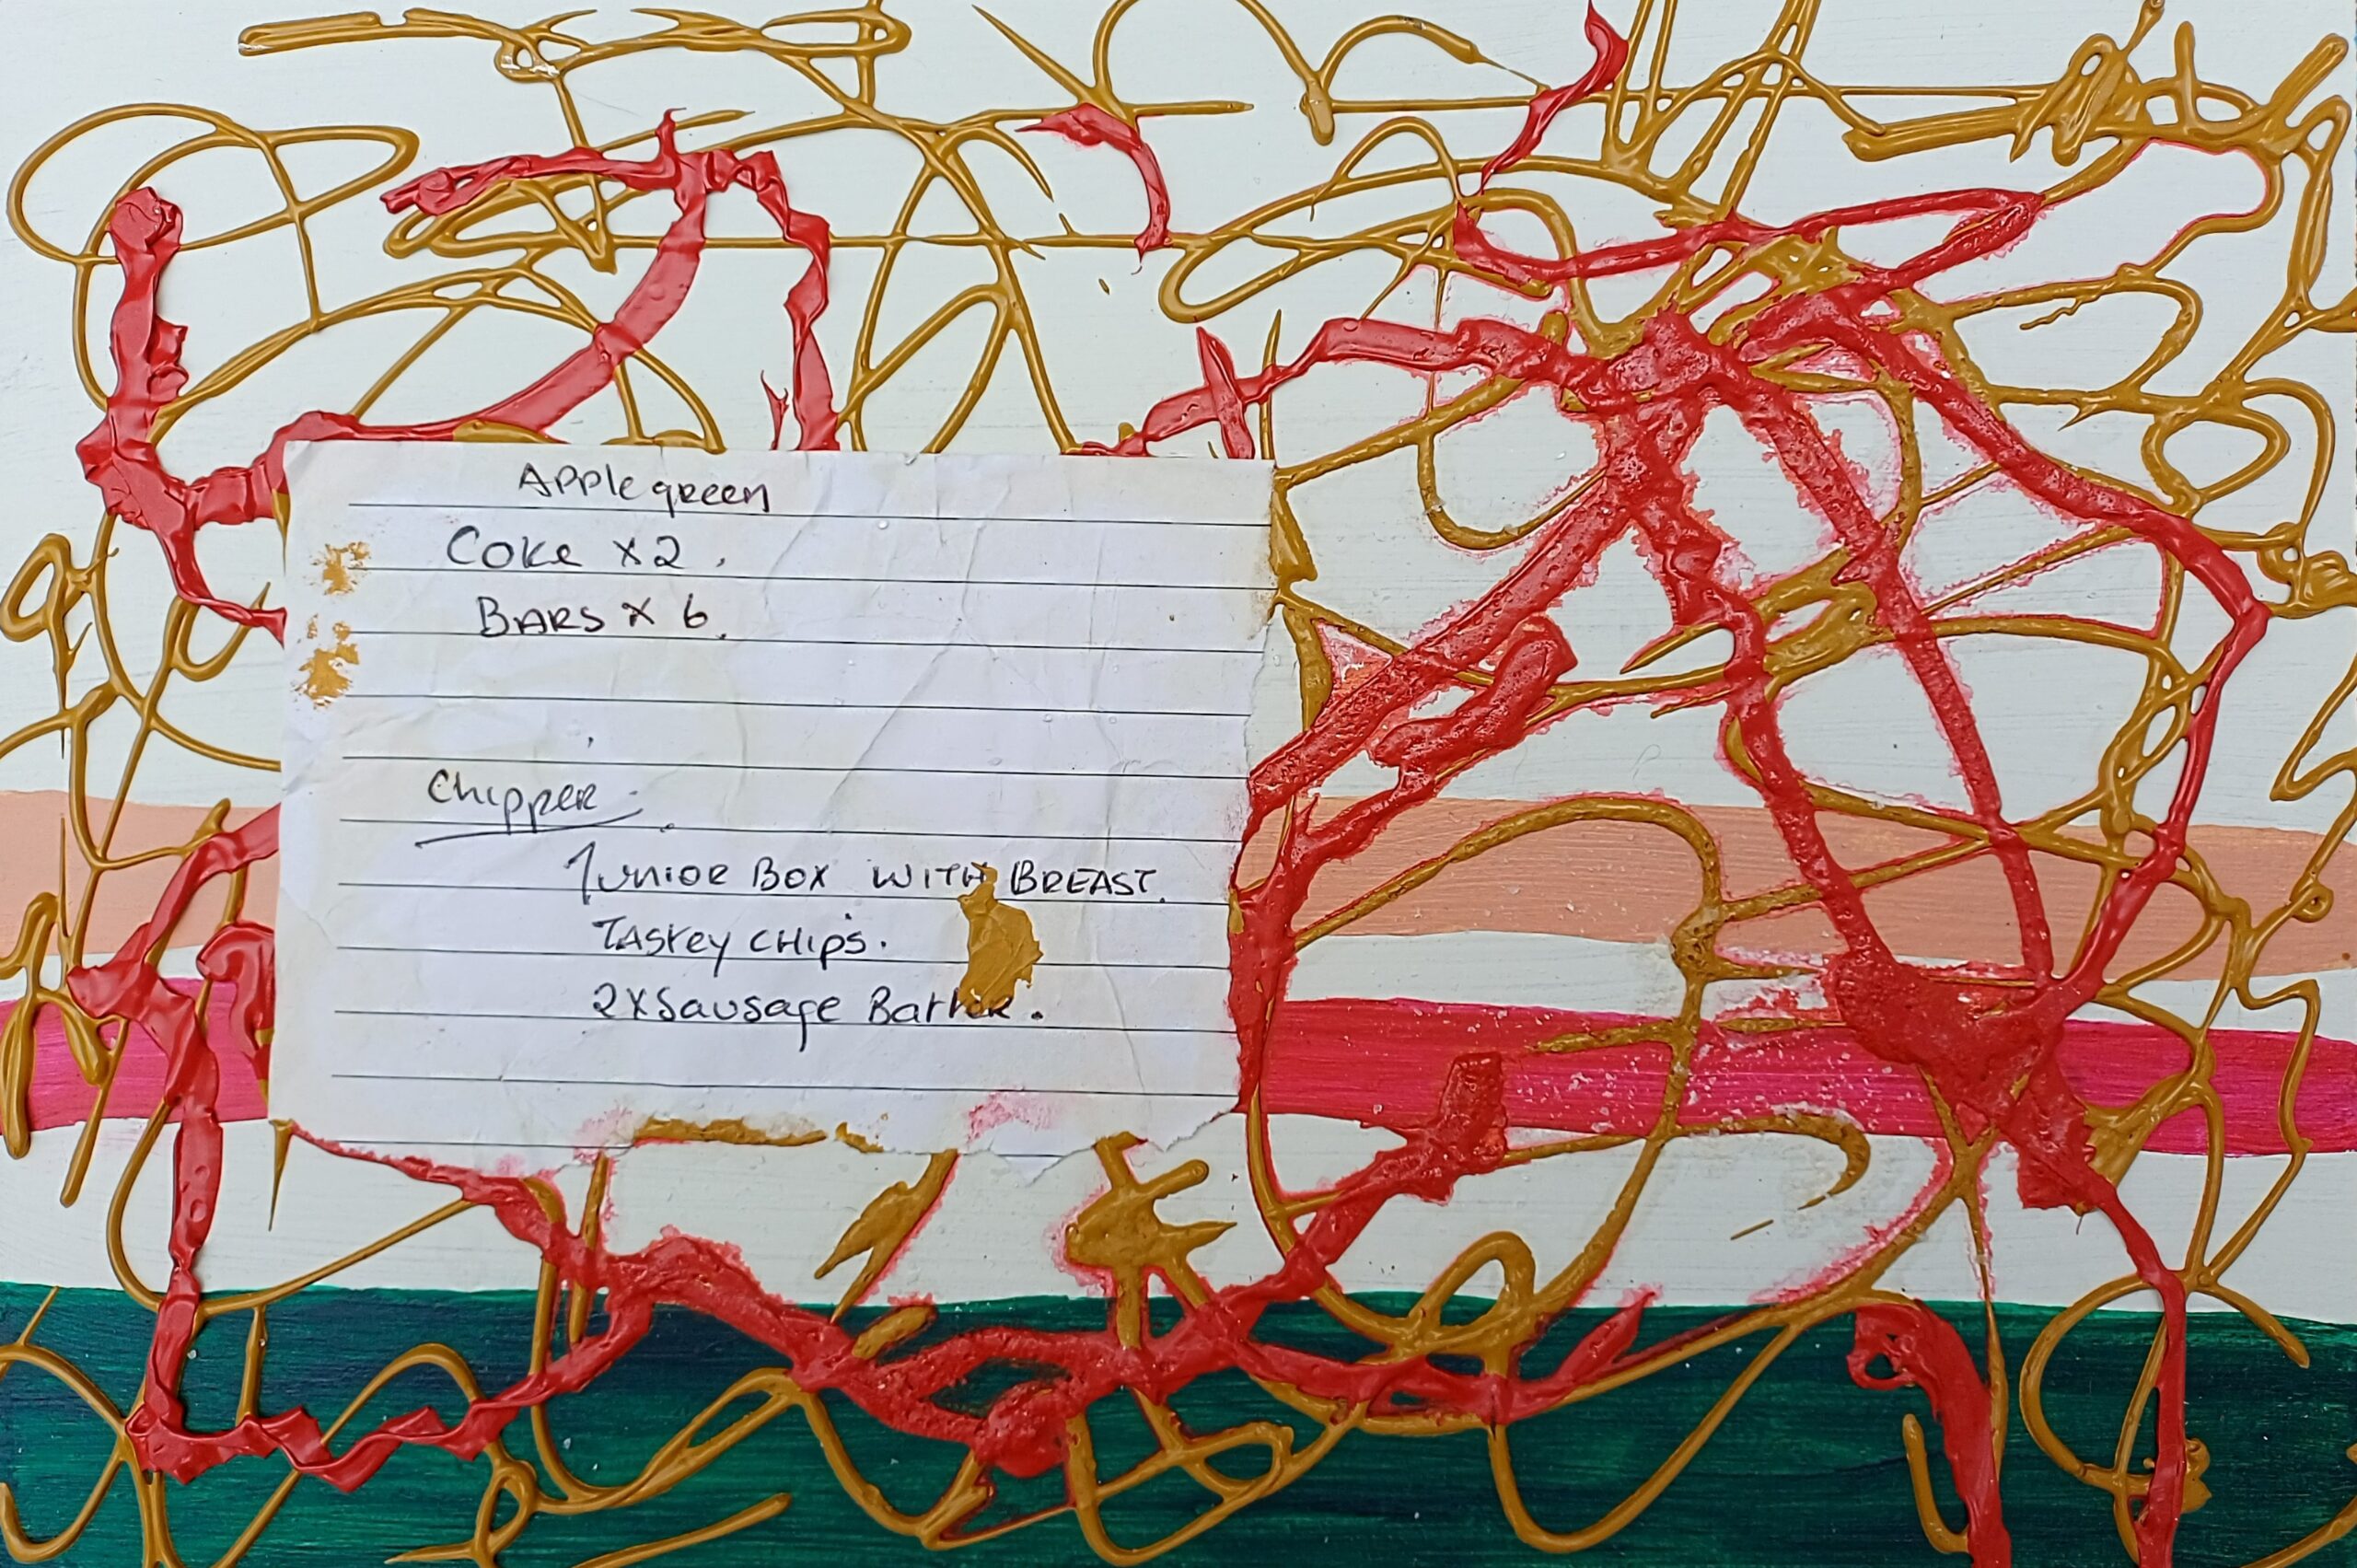 Applegreen
Coke x2.
BARS x 6.
Chipper.
Junior Box WITH BREAST.
TASTEY CHIPS.
2xSausage Batter.